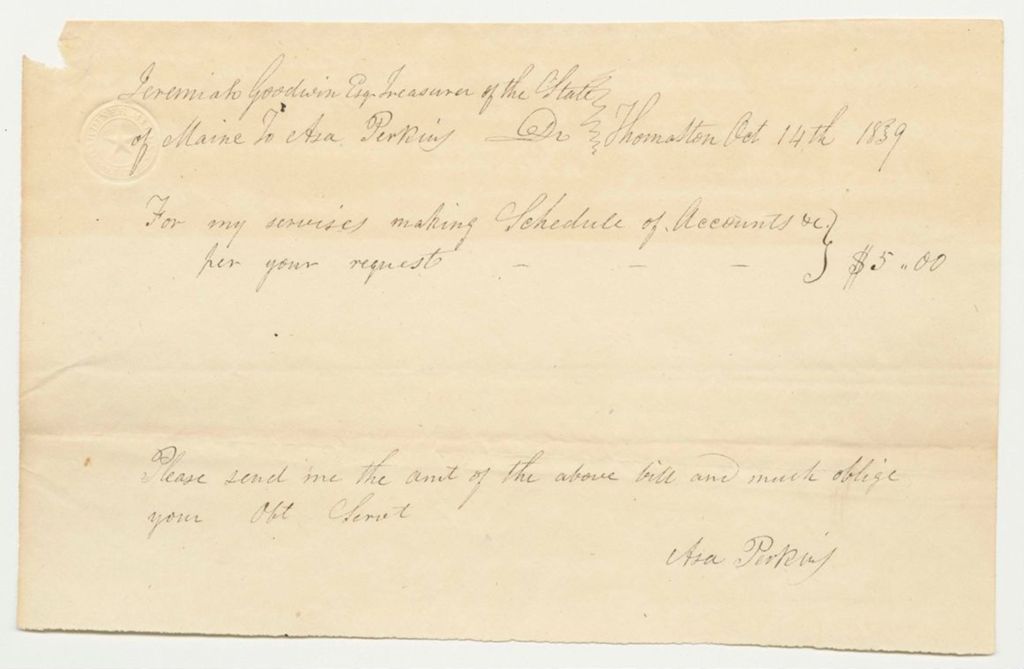 Jeremiah Goodwin Esq. Treasurer of the State
of Maine To Asa Perkins Dr Thomaston Oct 14th 1839
For my servises making Schedule of Accounts &c.
per your request - - - $5.00
Please send me the amt of the above bill and much oblige
your Obt Servt
Asa Perkins